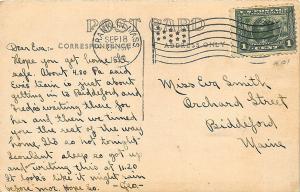 POST CARD
CORRESPONDENCE
ADDRESS ONLY
SEP 18
Dear Eva:-
Hope you got home all
safe. About 4.30 Pa said
Eva's train is just about
getting in to Biddeford and
Fred's waiting there for
her and then we timed
you the rest of the way
home. It's so hot tonight
I couldn't sleep so got up
and writing this at 11.20
It looks like it might rain
before morn. Hope so.
Miss Eva Smith
Orchard Street
Biddeford
Maine
1 1